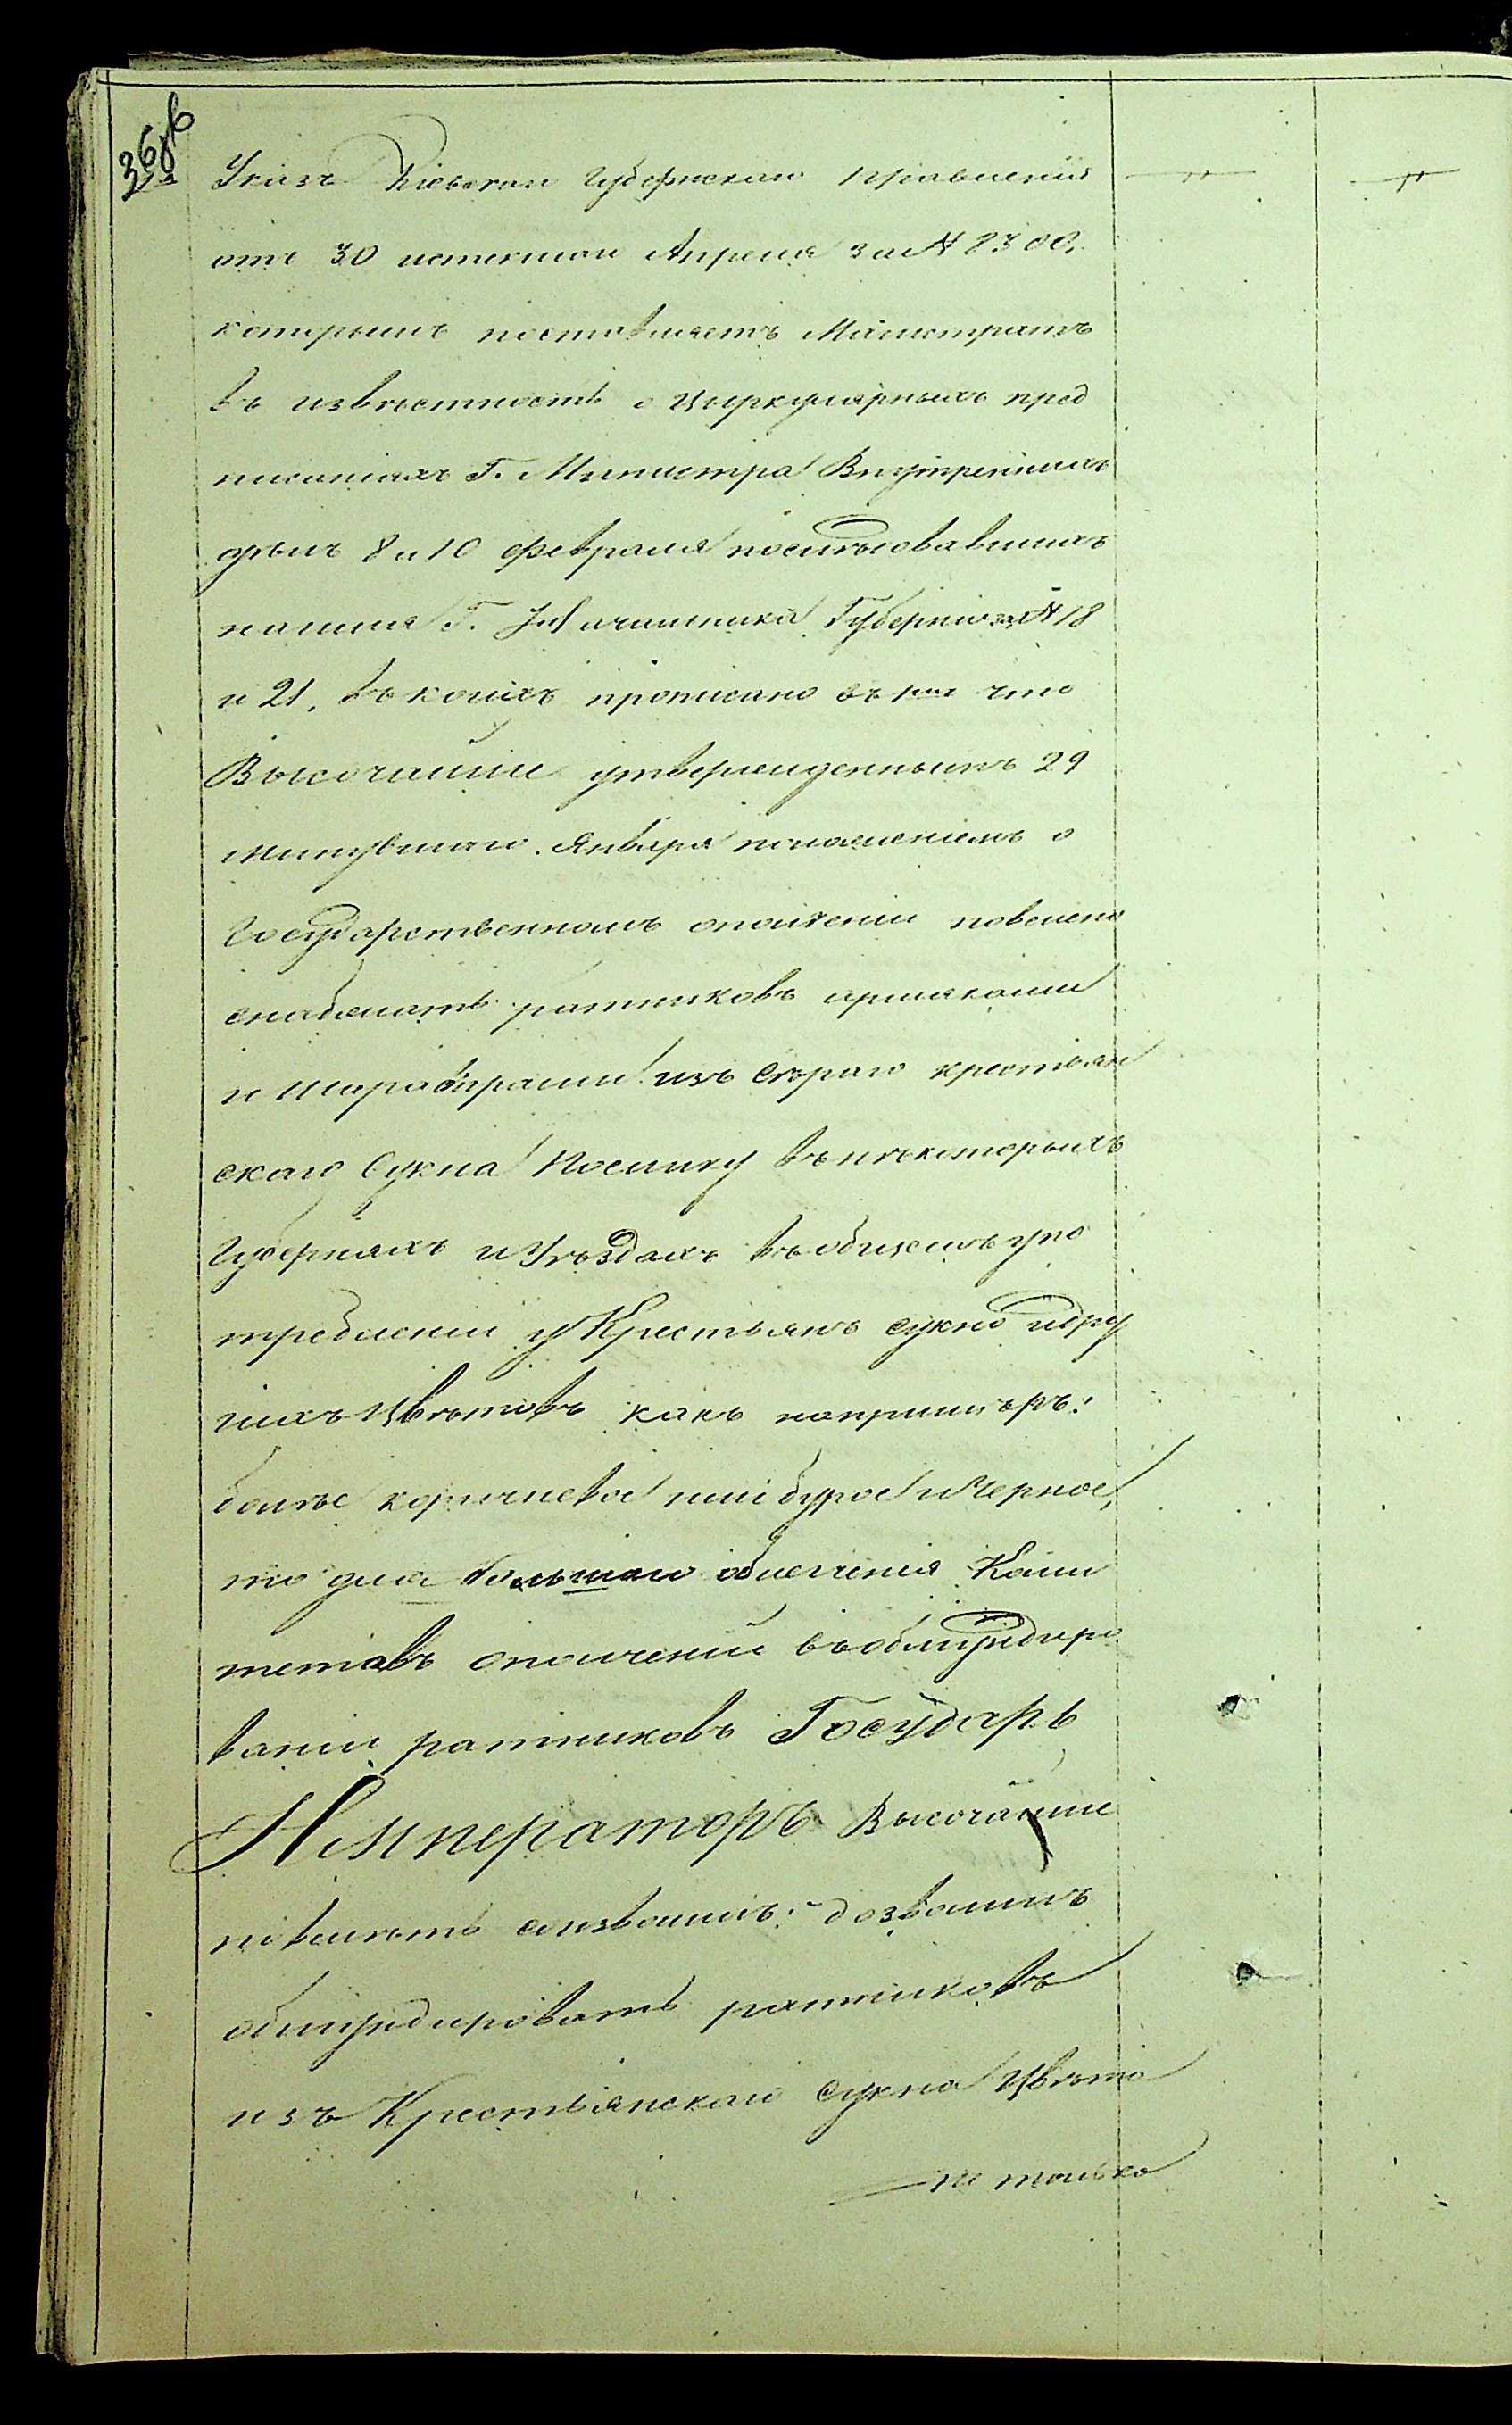 Указъ Кіевскаго Губернскаго Правленія
отъ 30 истекшаго Апреля за № 8300,
которымъ поставляетъ Магистратъ
въ извѣстность о циркулярныхъ пред
писаніяхъ Г. Министра Внутреннихъ
дѣлъ 8 и 10 февраля послѣдовавшихъ
на имя Г. Начальника Губерніи за № 18
и 21, въ коихъ прописано въ 1мъ что
Высочайше утвержденнымъ 29
минувшаго Января положеніемъ о
Государственномъ ополченіи повелено
снабжать ратниковъ армяками
и шараварами изъ Сѣраго крестьян
скаго Сукна Поелику въ нѣкоторыхъ
Губерніяхъ и Уѣздахъ въ общемъ упо
требленіи у Крестьянъ сукно и дру
гихъ Цвѣтовъ какъ напримѣръ:
белое коричневое или бурое и Черное,
то для большаго облегченія Коми
тетовъ ополченій въ обмундиро
ваніи ратниковъ Государь
Императоръ Высочайше
повелѣть соизволилъ: дозволить
обмундировать ратниковъ
изъ Крестьянскаго Сукна Цвѣта
не только